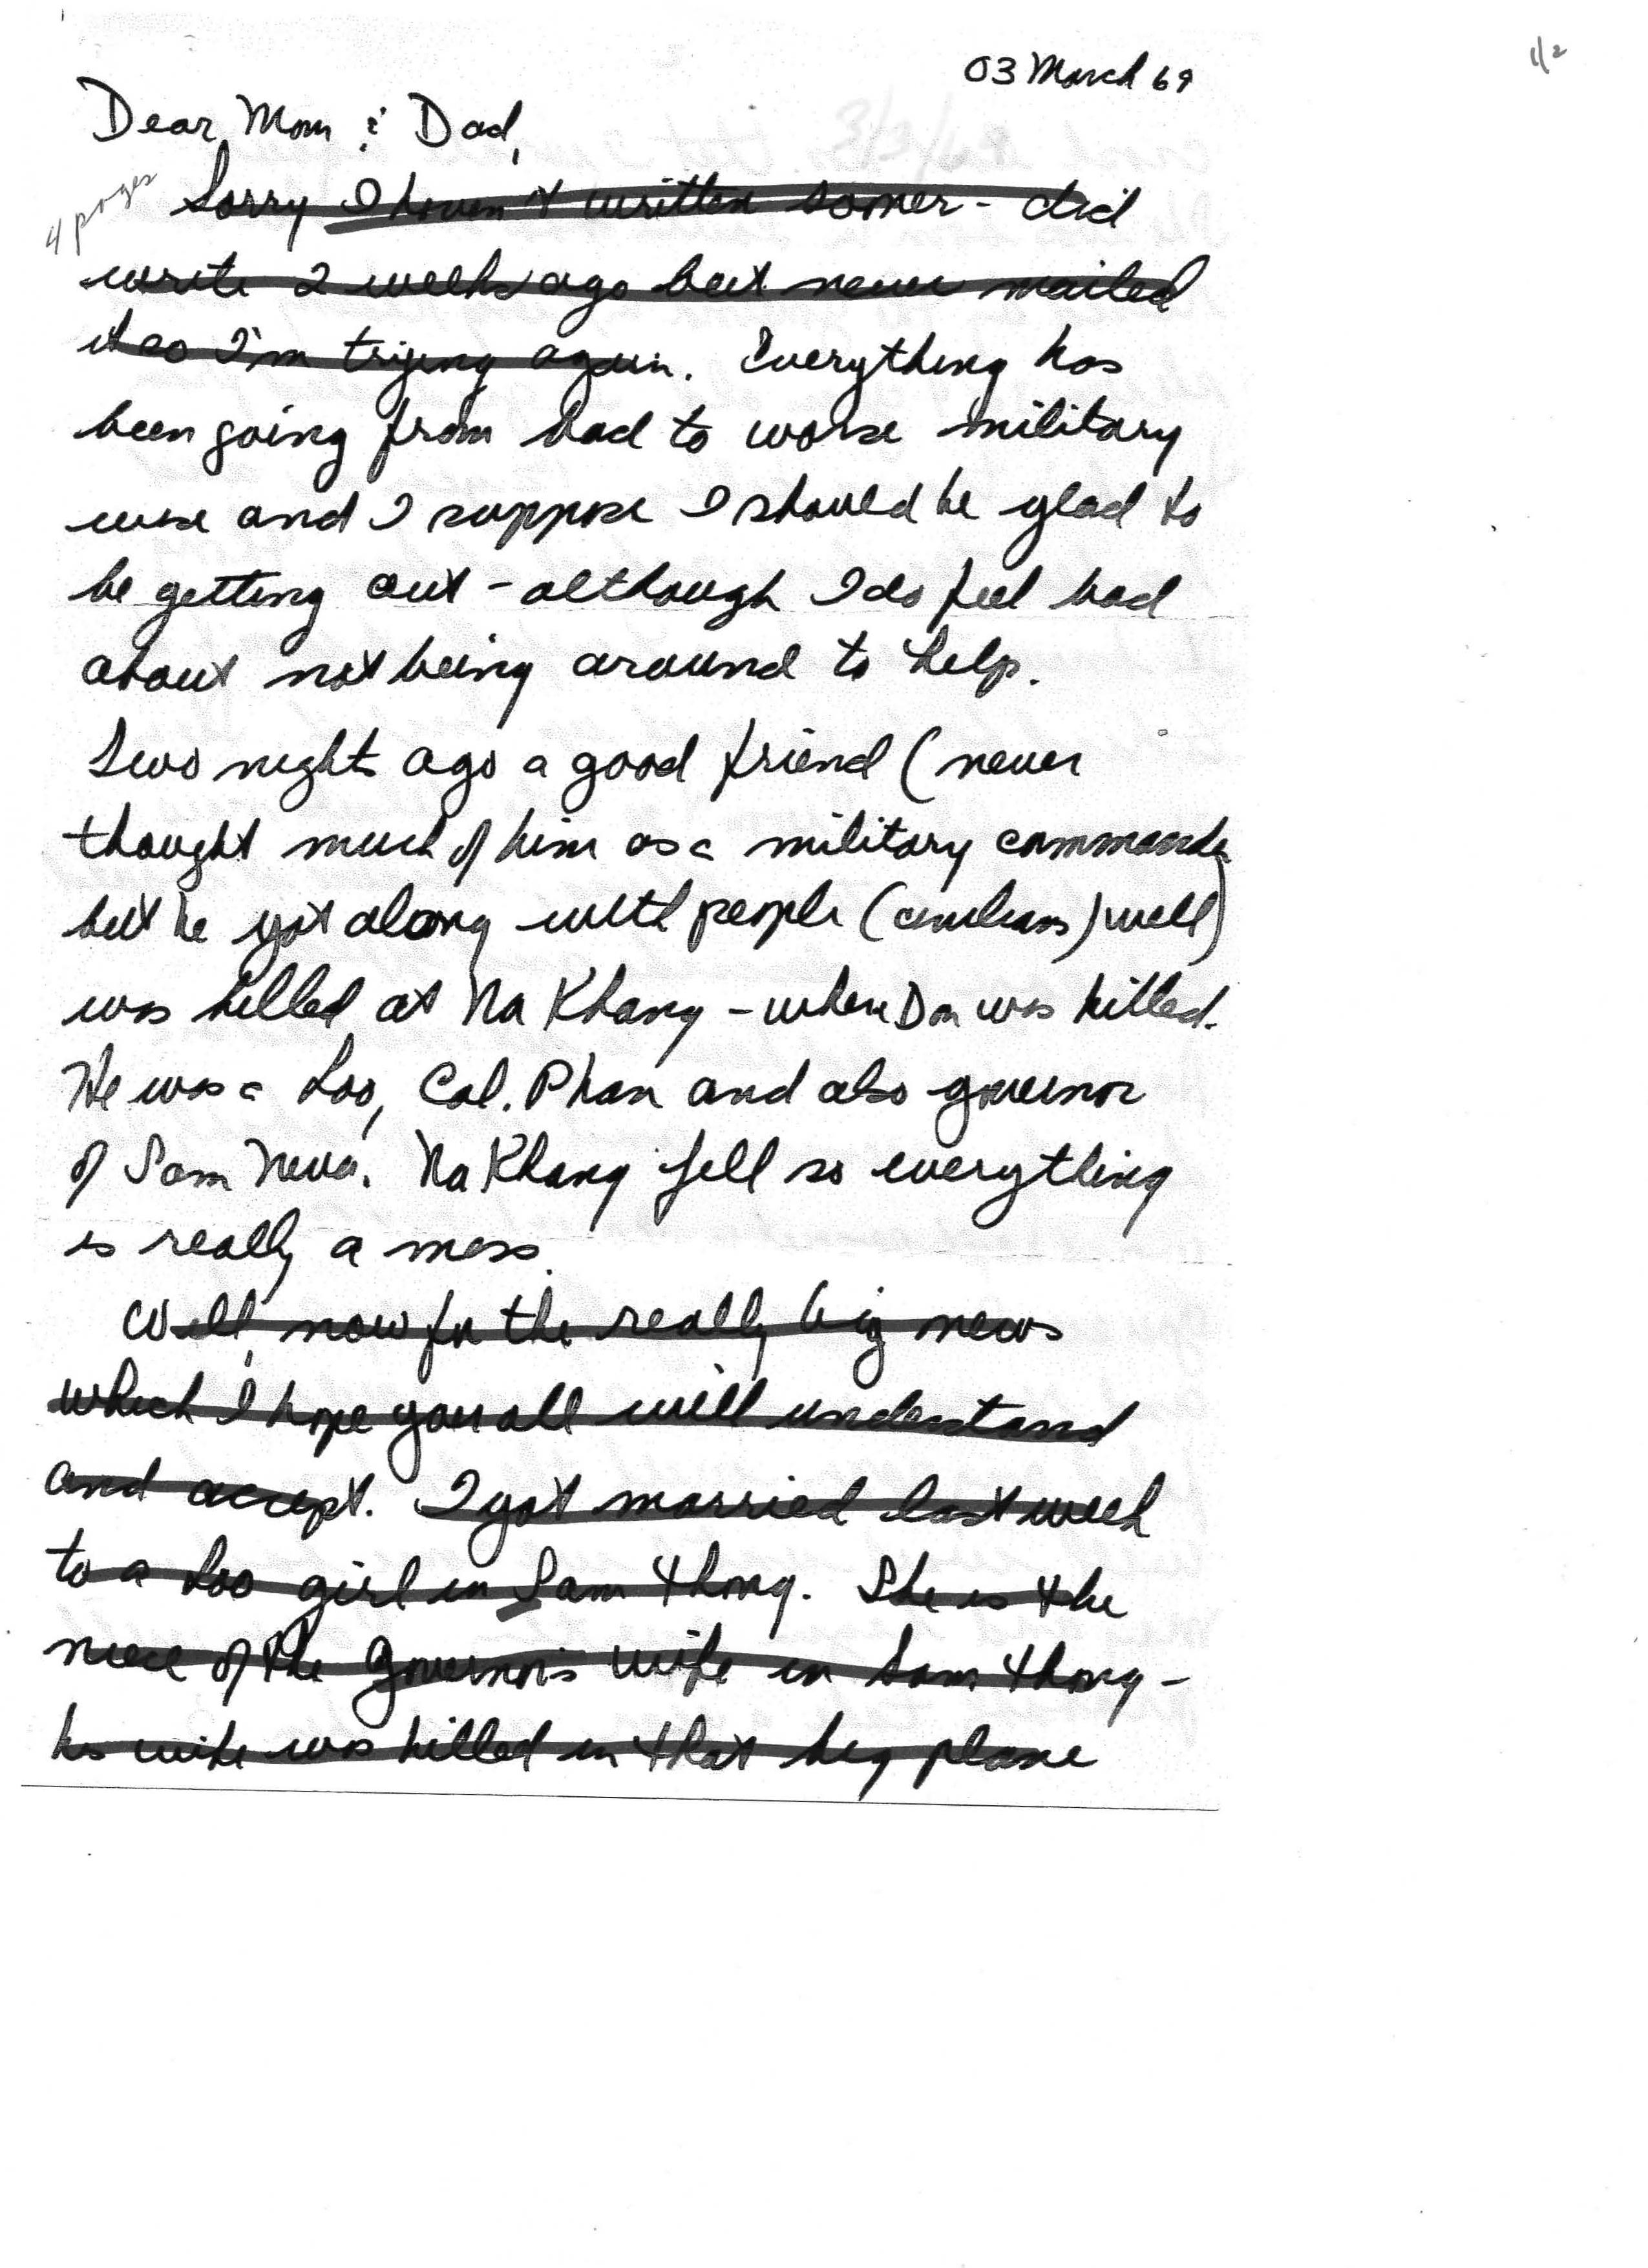 1/2
03 March 69
Dear Mom & Dad,
4 pages
Sorry I haven't written sooner - did
write 2 weeks ago but never mailed
it so I'm trying again. Everything has
been going from bad to worse military
wise and I suppose I should be glad to
be getting out - although I do feel bad
about not being around to help.
Two nights ago a good friend (never
thought much of him as a military commander
but he got along with people (civilians) well)
was killed at Na Khang - where Don was killed.
He was a Lao, Col. Phan and also governor
of Sam Neua. Na Khang fell so everything
is really a mess.
Well, now for the really big news
which I hope you all will understand
and accept. I got married last week
to a Lao girl in Sam Thong. She is the
niece of the Governor's wife in Sam Thong -
his wife was killed in that big plane